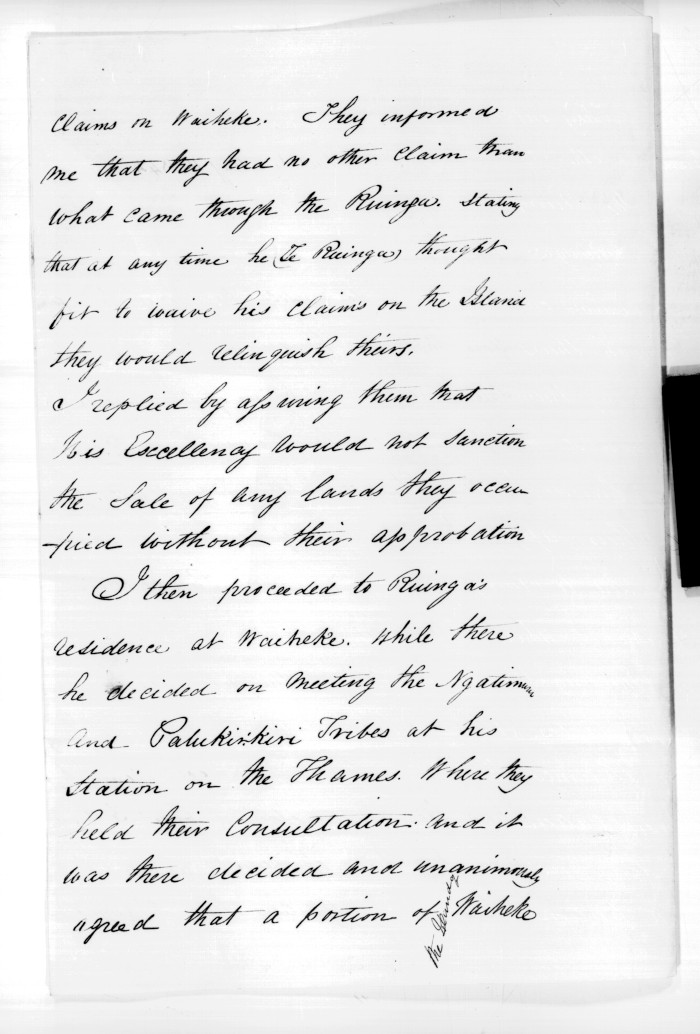 Claims on Waiheke. They informed
me that they had no other Claim than
what came through the Ruinga. Stating
that at any time he (Te Ruinga) thought
fit to waive his claims on the Island
they would relinquish theirs.
I replied by assuring them that
His Excellency would not sanction
the Sale of any lands they occu
-pied without their approbation
I then proceeded to Ruinga's
residence at Waiheke. While there
he decided on meeting the Ngatimaru
and Patukirikiri Tribes at his
Station on the Thames. Where they
held their Consultation. and it
was there decided and unanimously
agreed that a portion of the Island of Waiheke